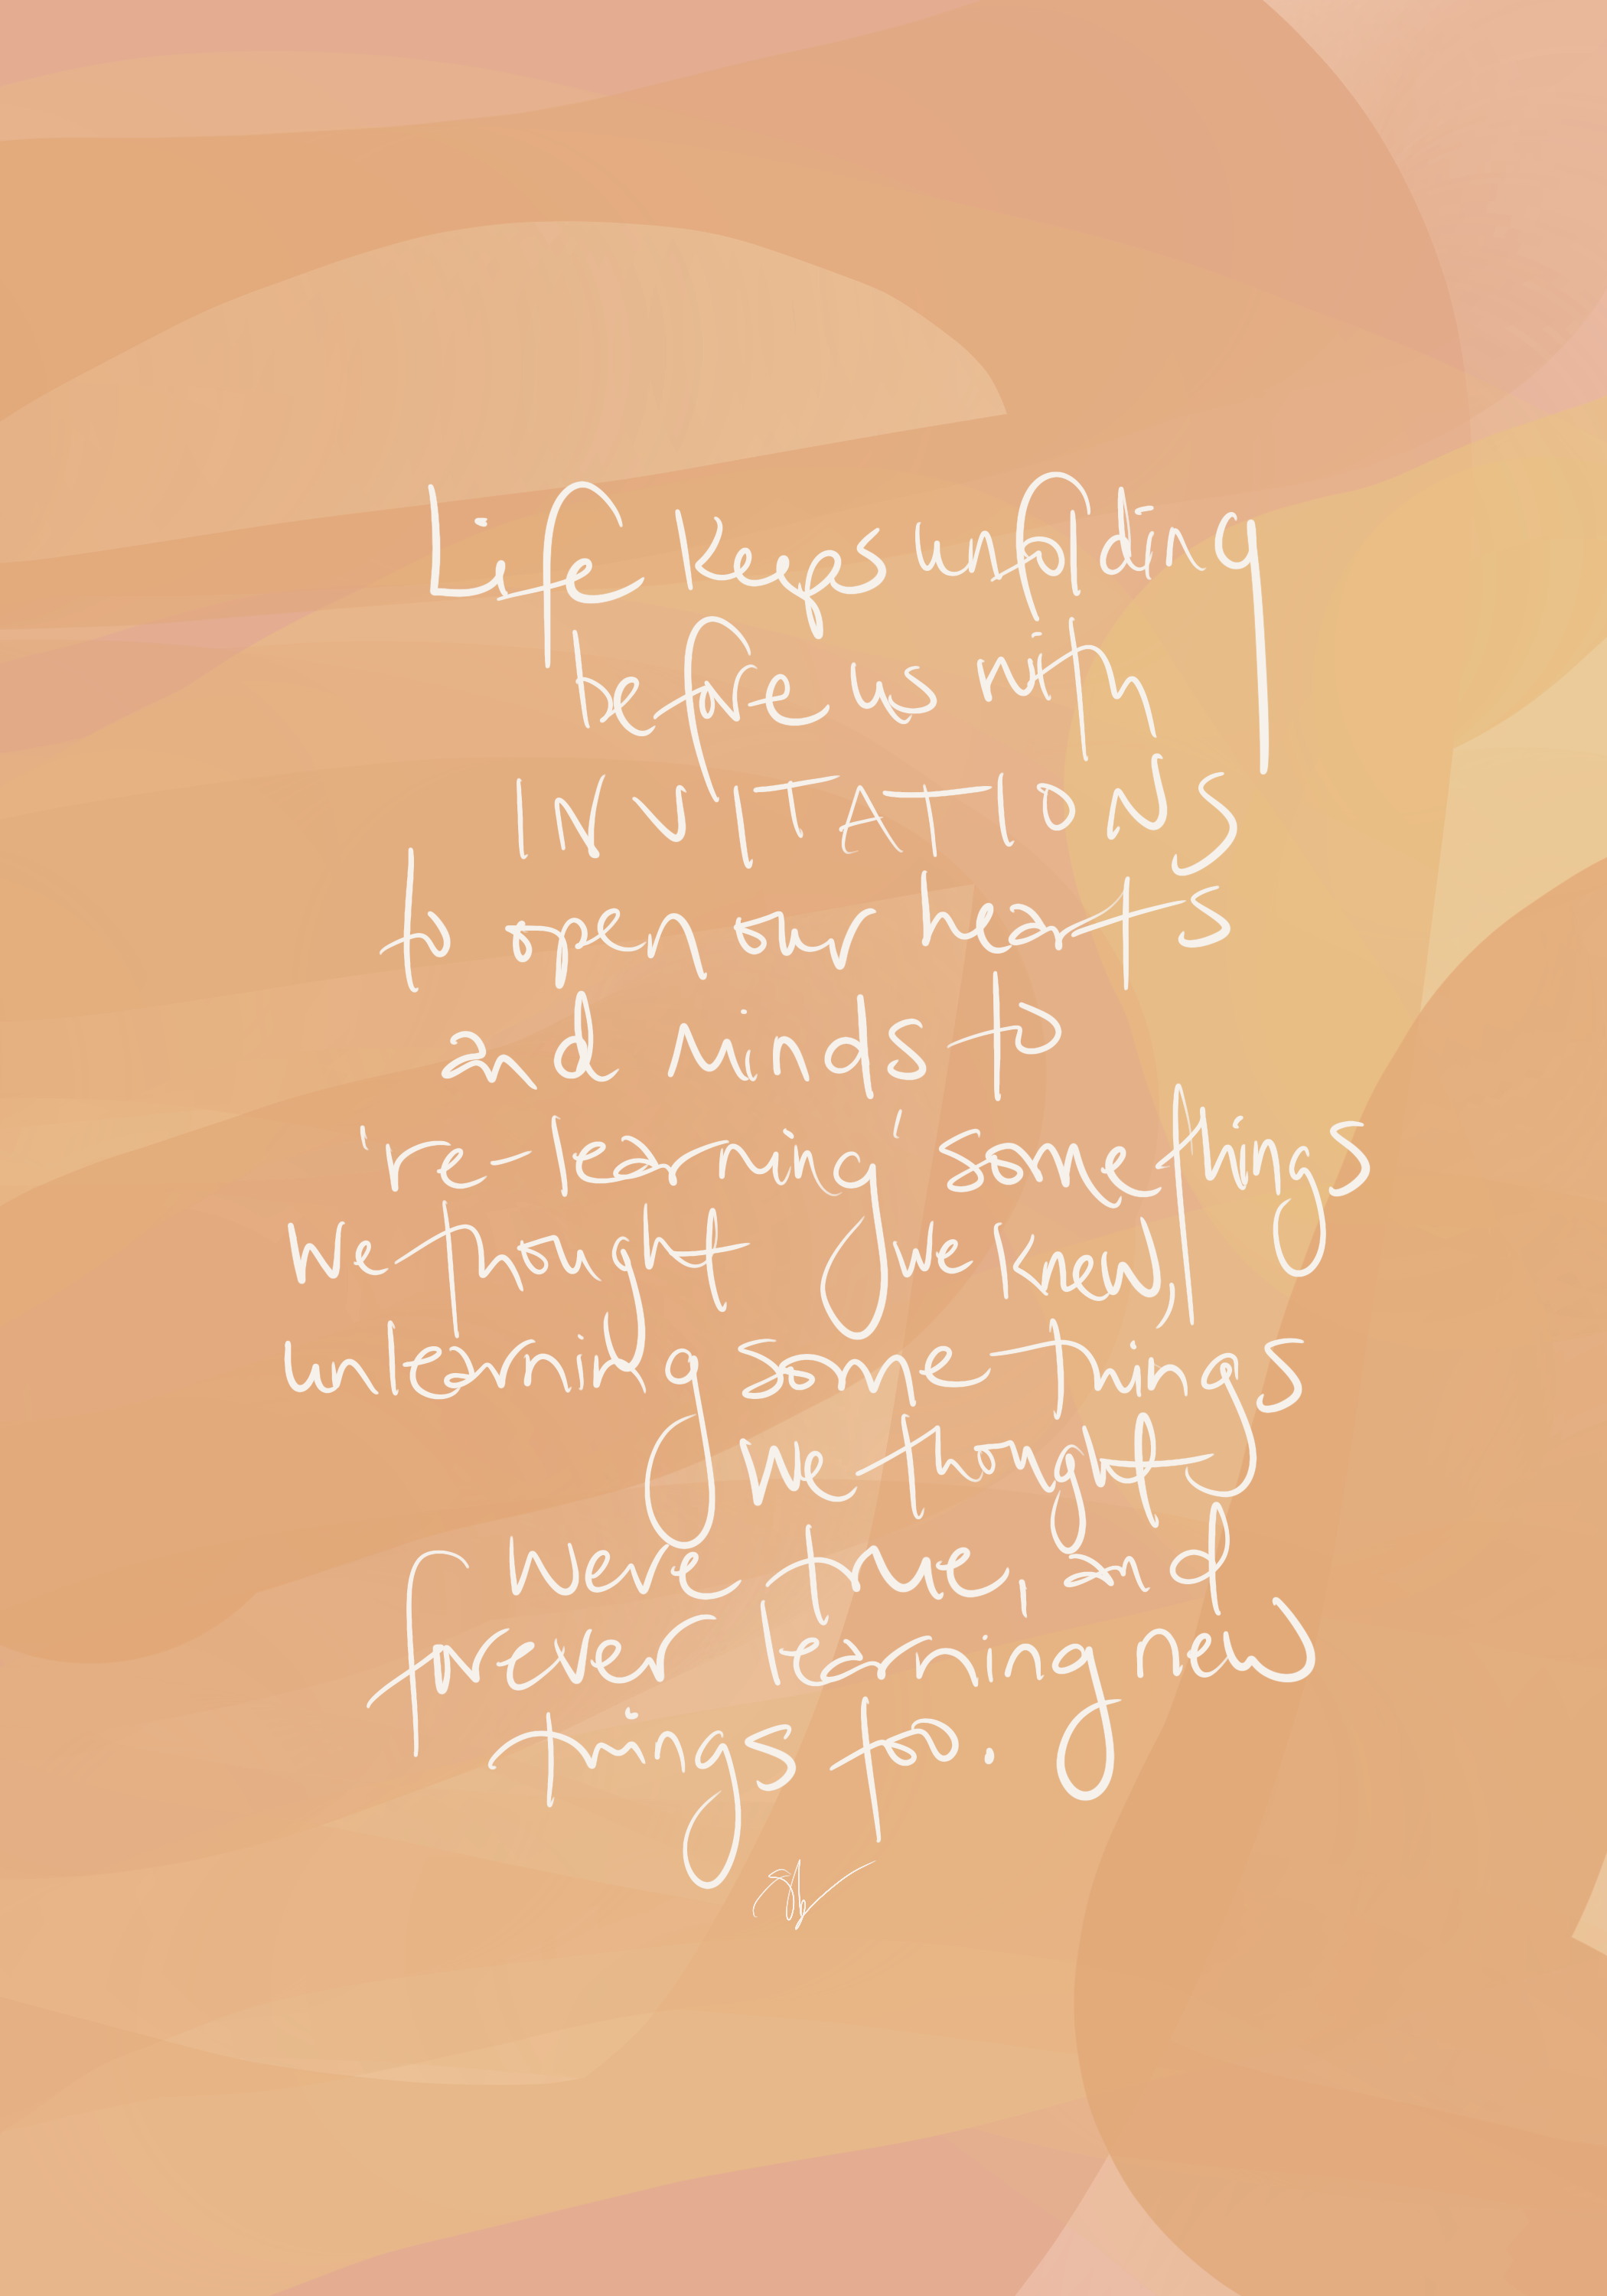 Life keeps unfolding
before us with
INVITATIONS
to open our hearts
and minds to
're-learning' some things
we thought we knew,
unlearning some things
we thought
were true, and
forever learning new
things too.